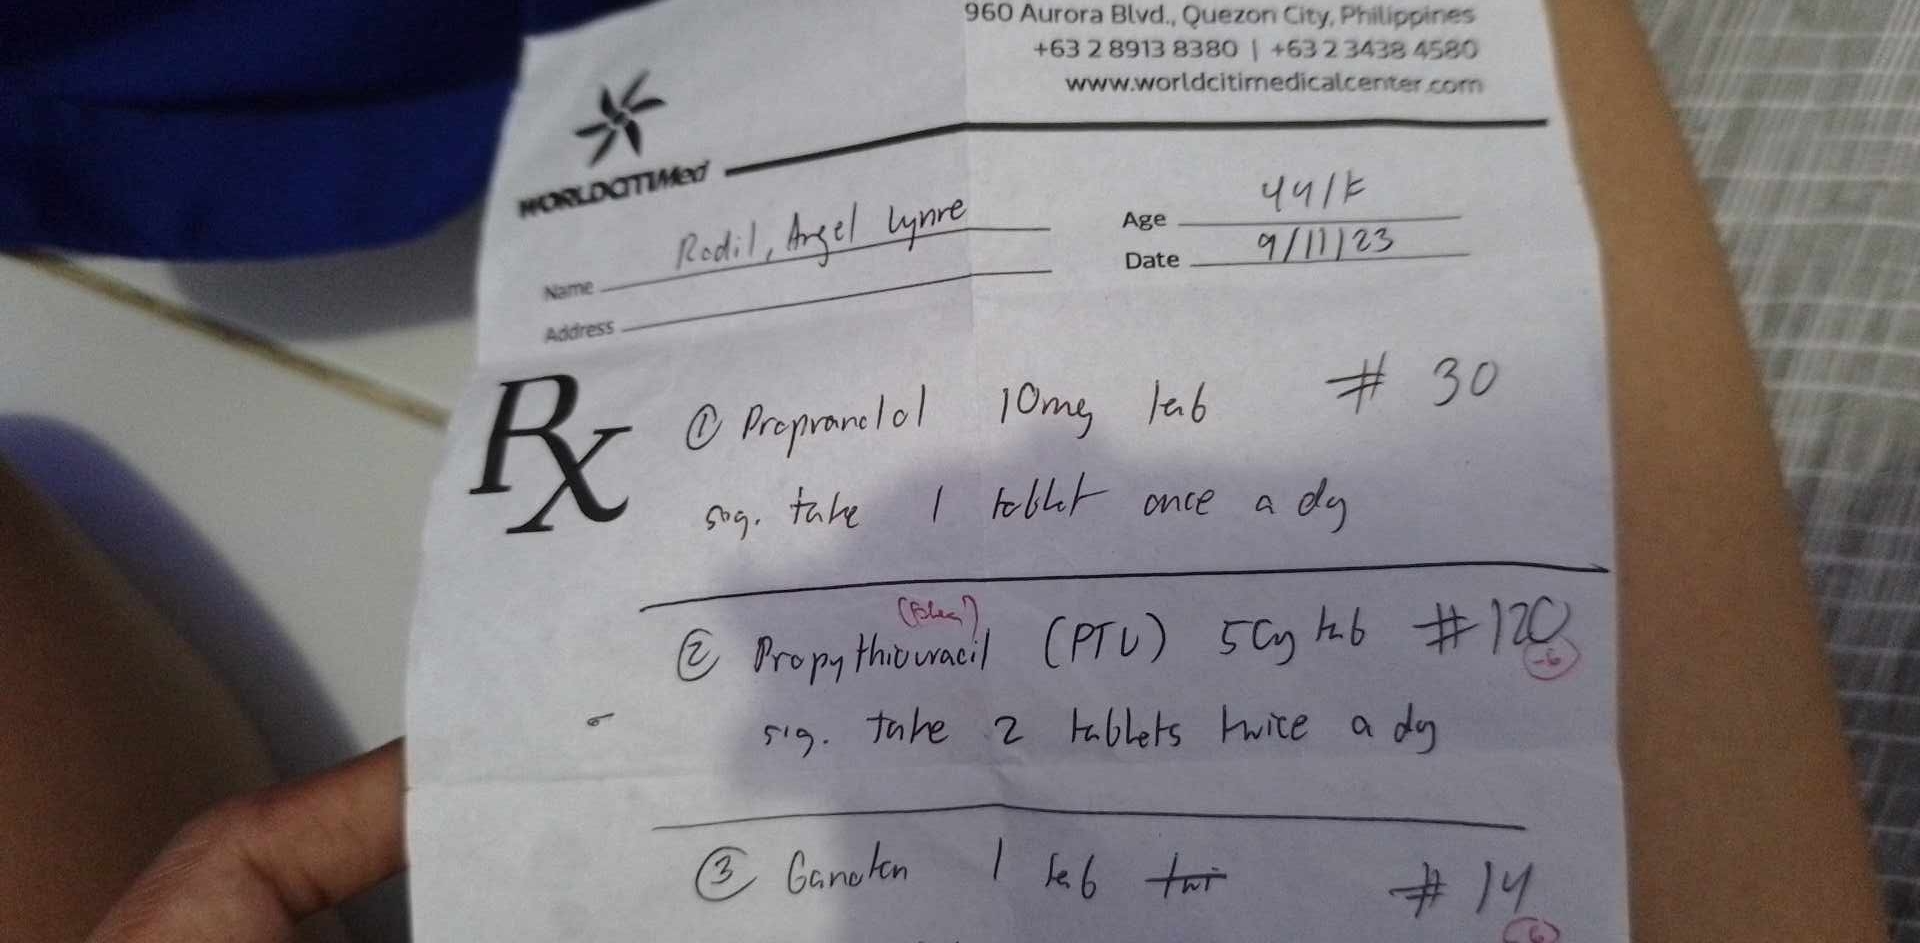 960 Aurora Blvd., Quezon City, Philippines
+63 2 8913 8380 | +63 2 3438 4580
www.worldcitimedicalcenter.com
WORLDCITIMed
Name Rodil, Angel Lynne
Age 44/F
Address
Date 9/11/23
Rx
① Propranolol 10mg tab # 30
sig. take 1 tablet once a day
② Propythiouracil (PTU) 50mg tab #120
-6
sig. take 2 tablets twice a day
③ Ganaton 1 tab # 14